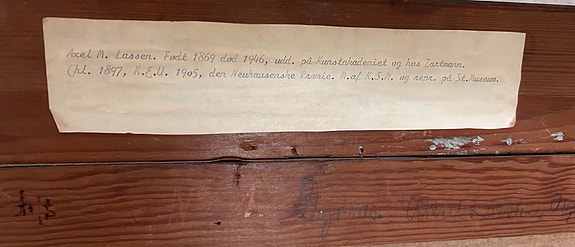 Axel M. Lassen. Født 1869 død 1946, udd. på Kunstakademiet og hos Zartmann.
(hl. 1897, K.E.U. 1905, den Neuhausenske Præmie. M.af K.S.M. og repr. på St.Museum.